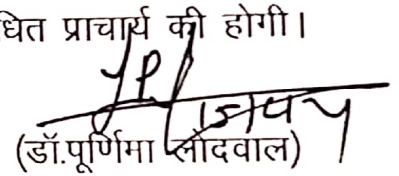 धित प्राचार्य की होगी।
(डॉ.पूर्णिमा लोदवाल)